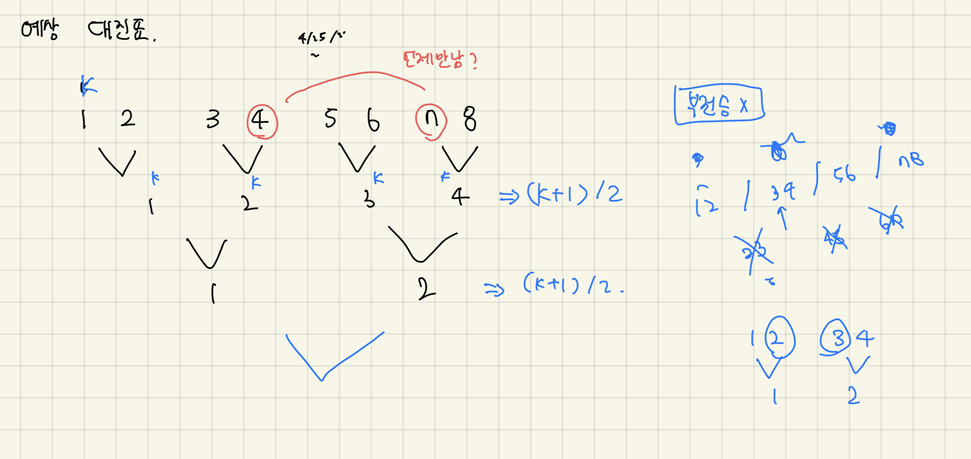 예상 대진표.
4/25/
언제만남?
K
1 2 3 4 5 6 7 8
K K K K
1 2 3 4 ⇒ (K+1)/2
1 2 ⇒ (K+1)/2.
부전승 x
12 / 34 / 56 / 78
23 45 67
1 2 3 4
1 2